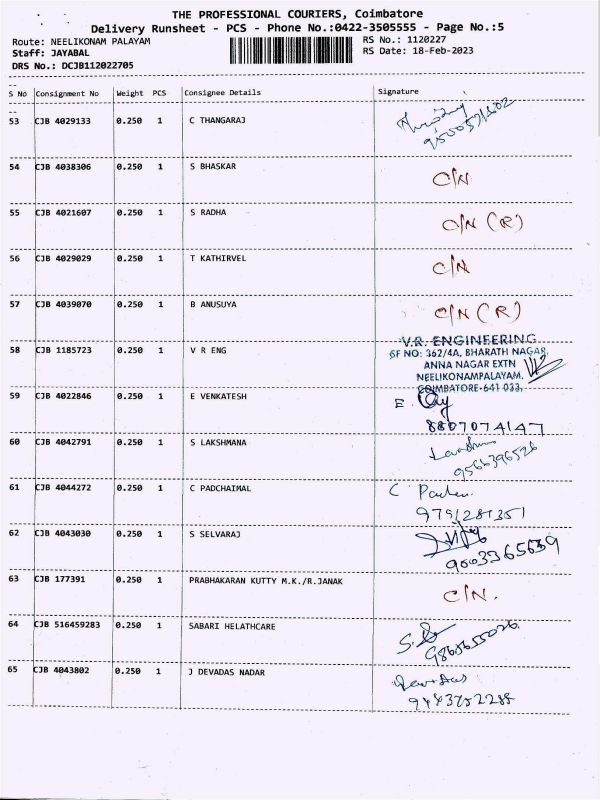 THE PROFESSIONAL COURIERS, Coimbatore
Delivery Runsheet - PCS - Phone No.:0422-3505555 - Page No.:5
Route: NEELIKONAM PALAYAM RS No.: 1120227
Staff: JAYABAL RS Date: 18-Feb-2023
DRS No.: DCJB112022705
S No Consignment No Weight PCS Consignee Details Signature
53 CJB 4029133 0.250 1 C THANGARAJ
54 CJB 4038306 0.250 1 S BHASKAR C/N
55 CJB 4021607 0.250 1 S RADHA C/N (R)
56 CJB 4029029 0.250 1 T KATHIRVEL C/N
57 CJB 4039070 0.250 1 B ANUSUYA C/N (R)
V.R. ENGINEERING
58 CJB 1185723 0.250 1 V R ENG SF NO: 362/4A, BHARATH NAGAR,
ANNA NAGAR EXTN
NEELIKONAMPALAYAM,
COIMBATORE-641 033.
59 CJB 4022846 0.250 1 E VENKATESH E
8807074147
60 CJB 4042791 0.250 1 S LAKSHMANA
9566396526
61 CJB 4044272 0.250 1 C PADCHAIMAL C
9791287351
62 CJB 4043030 0.250 1 S SELVARAJ
9003365639
63 CJB 177391 0.250 1 PRABHAKARAN KUTTY M.K./R.JANAK C/N.
64 CJB 516459283 0.250 1 SABARI HELATHCARE
9865655026
65 CJB 4043802 0.250 1 J DEVADAS NADAR
9443752288